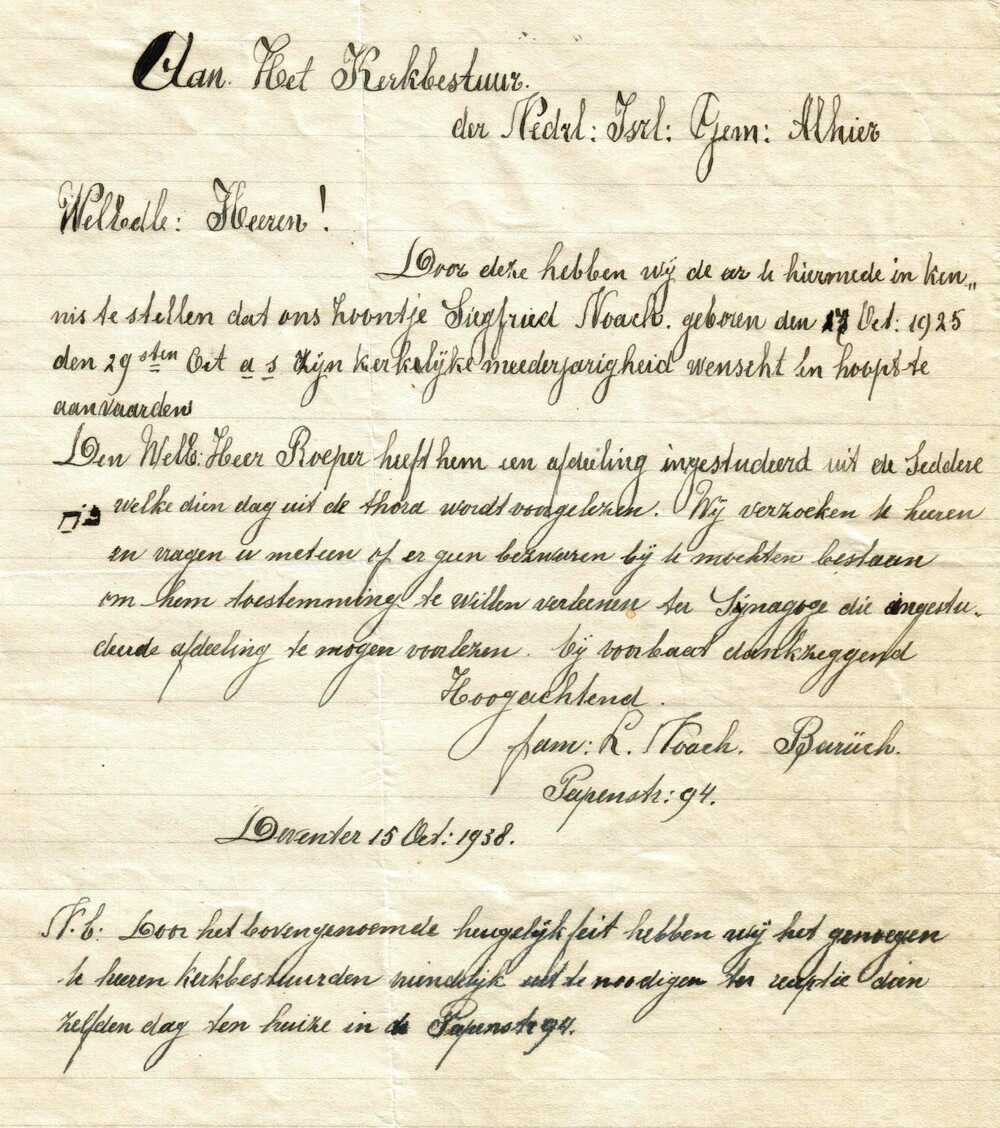 Aan. Het Kerkbestuur.
der Nedrl: Isrl: Gem: Alhier
WelEdle: Heeren!
Door deze hebben wij de eer U hiermede in ken„
nis te stellen dat ons zoontje Siegfried Noach. geboren den 17 Oct: 1925
den 29sten Oct a s Zijn kerkelijke meederjarigheid wenscht en hoopt te
aanvaarden
Den WelE: Heer Roeper heeft hem een afdeeling ingestudeerd uit de Seddere
נח welke dien dag uit de thora wordt voorgelezen. Wij verzoeken U heeren
en vragen U meteen of er geen bezwaren bij U mochten bestaan
om hem toestemming te willen verleenen ter Synagoge die ingestu„
deerde afdeeling te mogen voorlezen. bij voorbaat dankzeggend
Hoogachtend.
fam: L. Noach. Barüch.
Papenstr: 94.
Deventer 15 Oct: 1938.
N.b: Door het bovengenoemde heugelijk feit hebben wij het genoegen
U heeren kerkbestuurden vriendelijk uit te noodigen ter receptie dien
zelfden dag ten huize in de Papenstr 94.